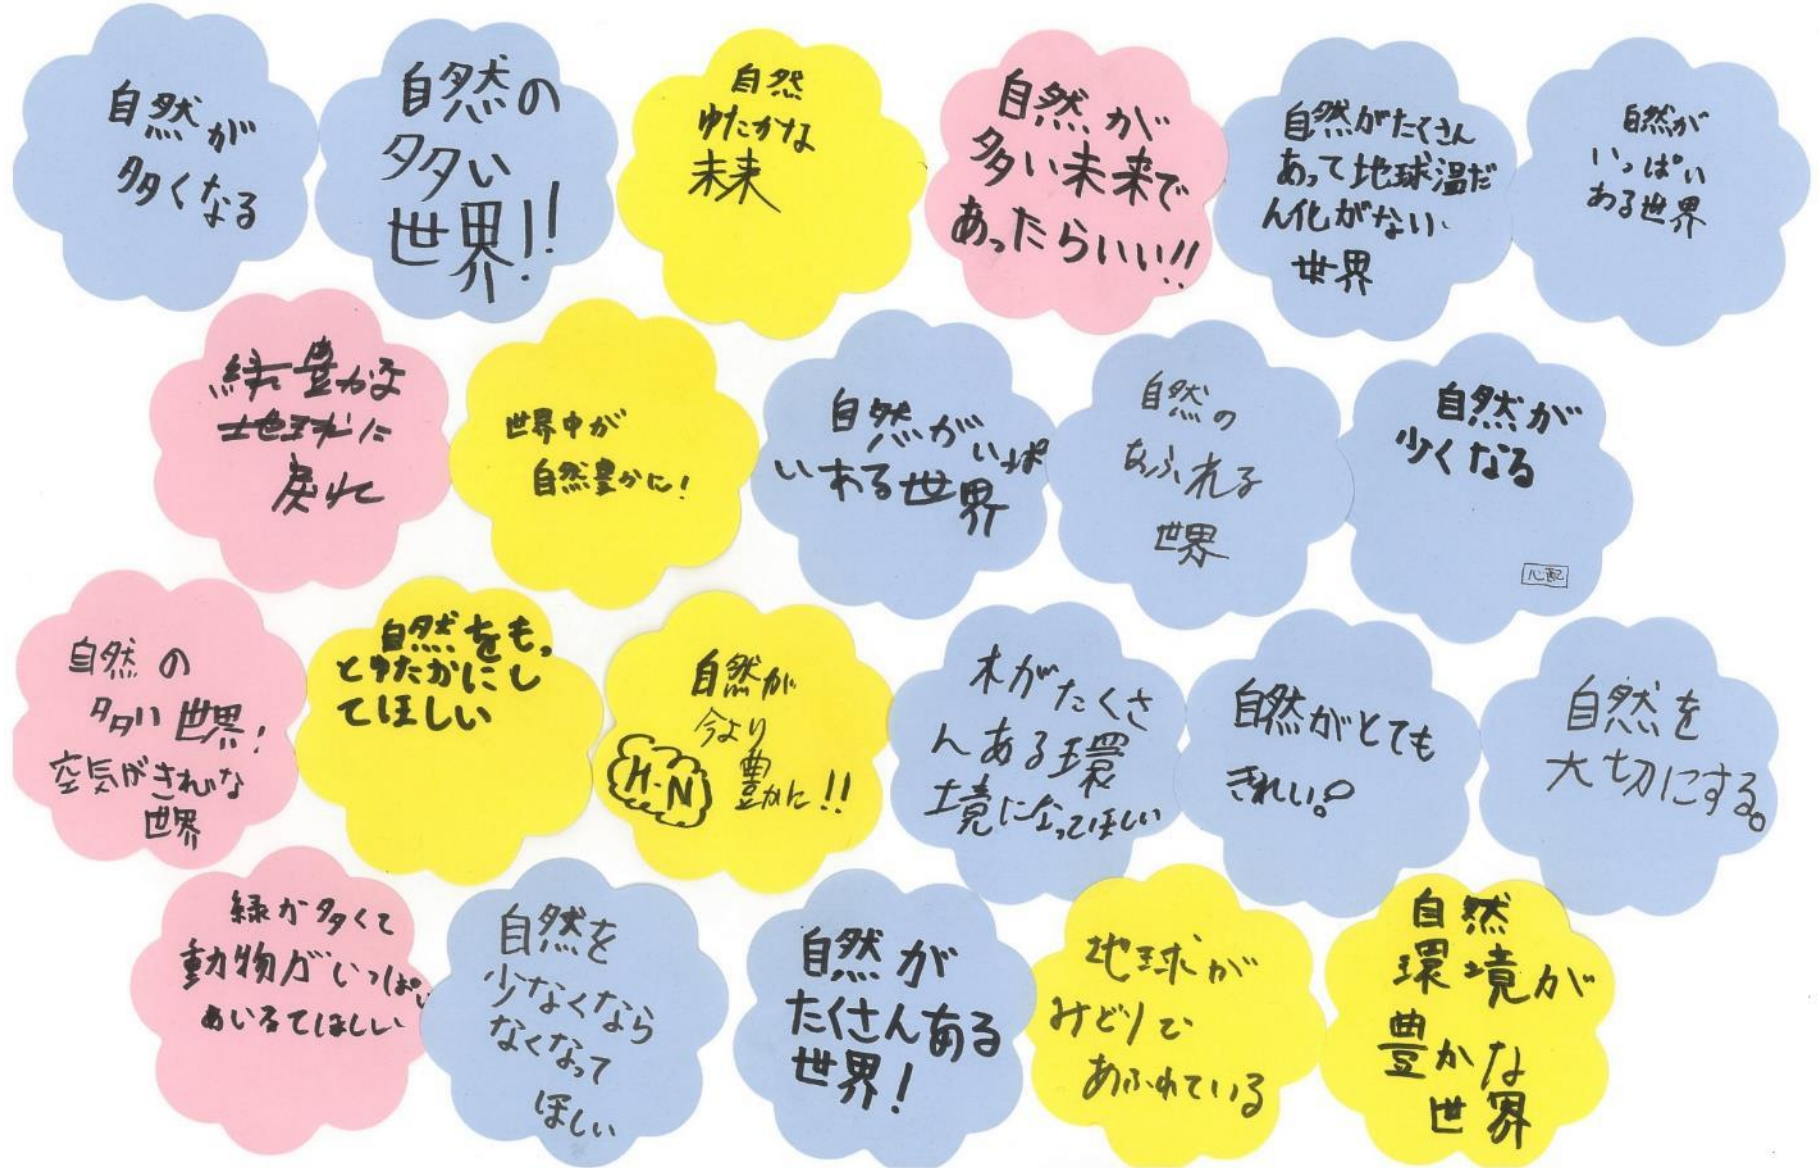 自然が
多くなる
自然の
多い
世界!!
自然
ゆたかな
未来
自然が
多い未来で
あったらいい!!
自然がたくさん
あって地球温だ
ん化がない
世界
自然が
いっぱい
ある世界
緑豊かな
地球に
戻れ
世界中が
自然豊かに!
自然がいっぱ
いある世界
自然の
あふれる
世界
自然が
少くなる
心配
自然の
多い世界!
空気がきれいな
世界
自然をもっ
とゆたかにし
てほしい
自然が
今より
豊かに!!
H-N
木がたくさ
んある環
境になってほしい
自然がとても
きれい。
自然を
大切にする。
緑が多くて
動物がいっぱい
ほしい
自然を
少なくなら
なくなって
ほしい
自然が
たくさんある
世界!
地球が
みどりで
あふれている
自然
環境が
豊かな
世界